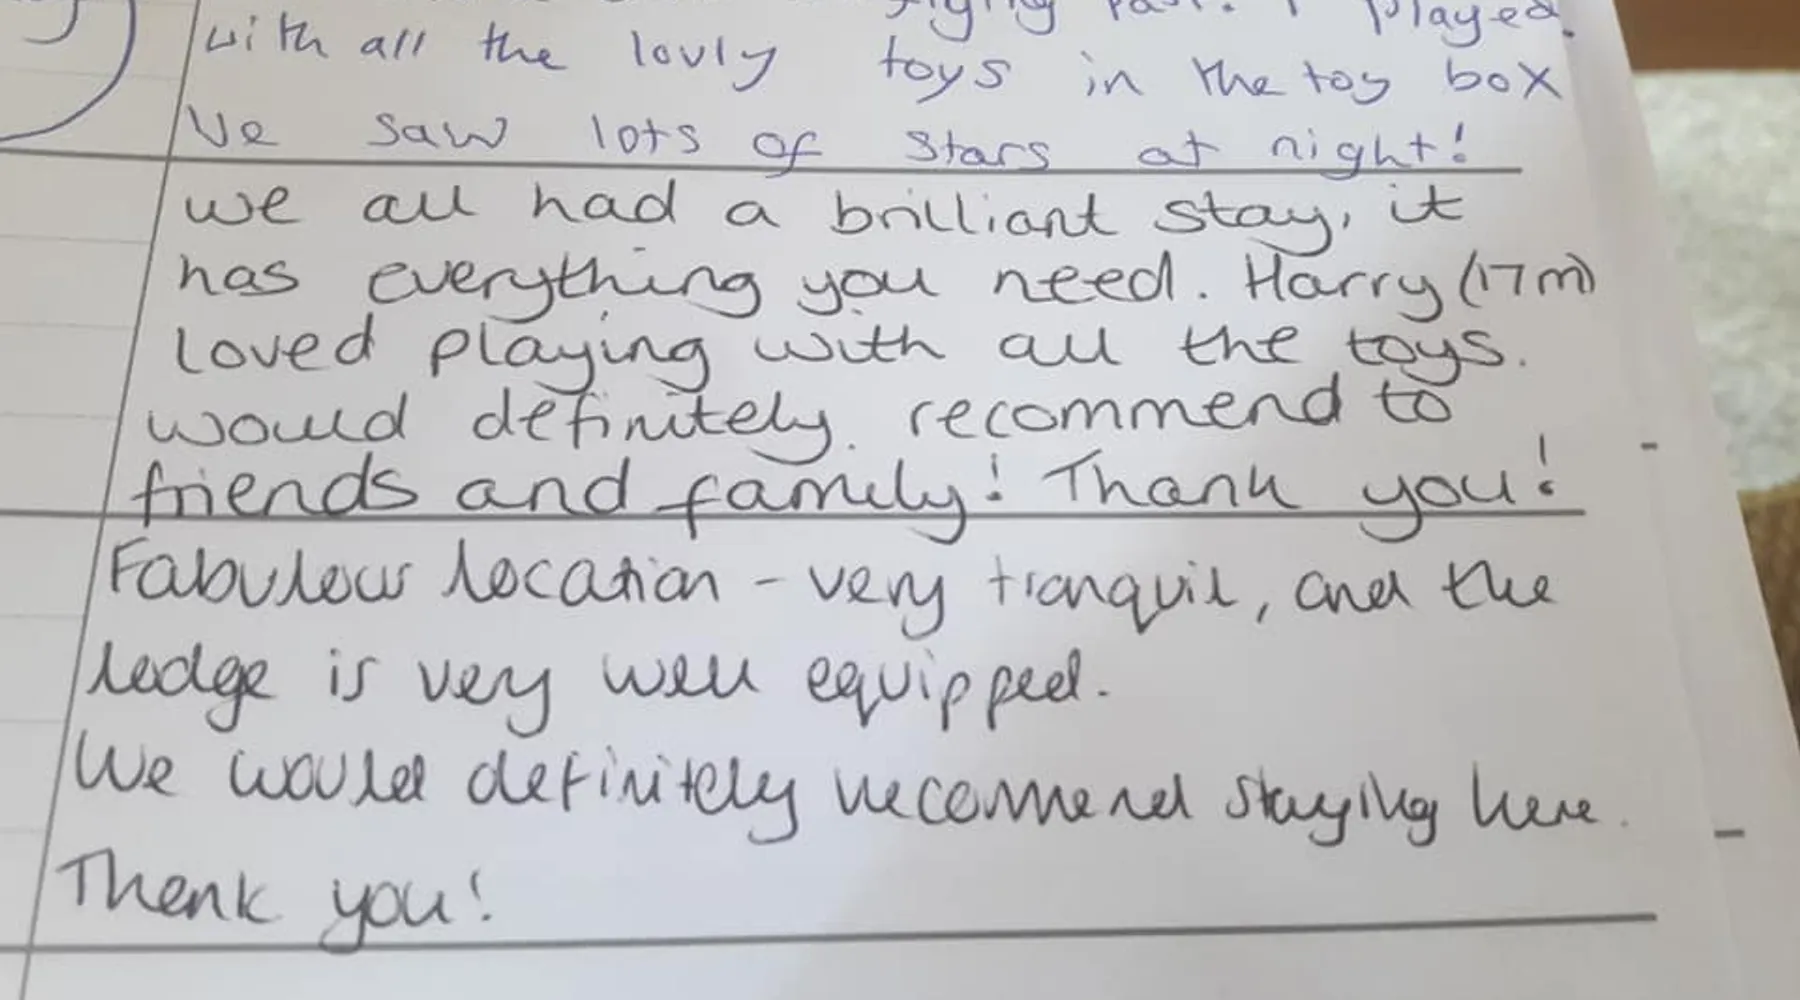 flying past. I played
with all the lovly toys in the toy box
We saw lots of stars at night!
we all had a brilliant stay, it
has everything you need. Harry (17m)
loved playing with all the toys.
would definitely recommend to
friends and family! Thank you!
Fabulous location - very tranquil, and the
lodge is very well equipped.
We would definitely recommend staying here.
Thank you!